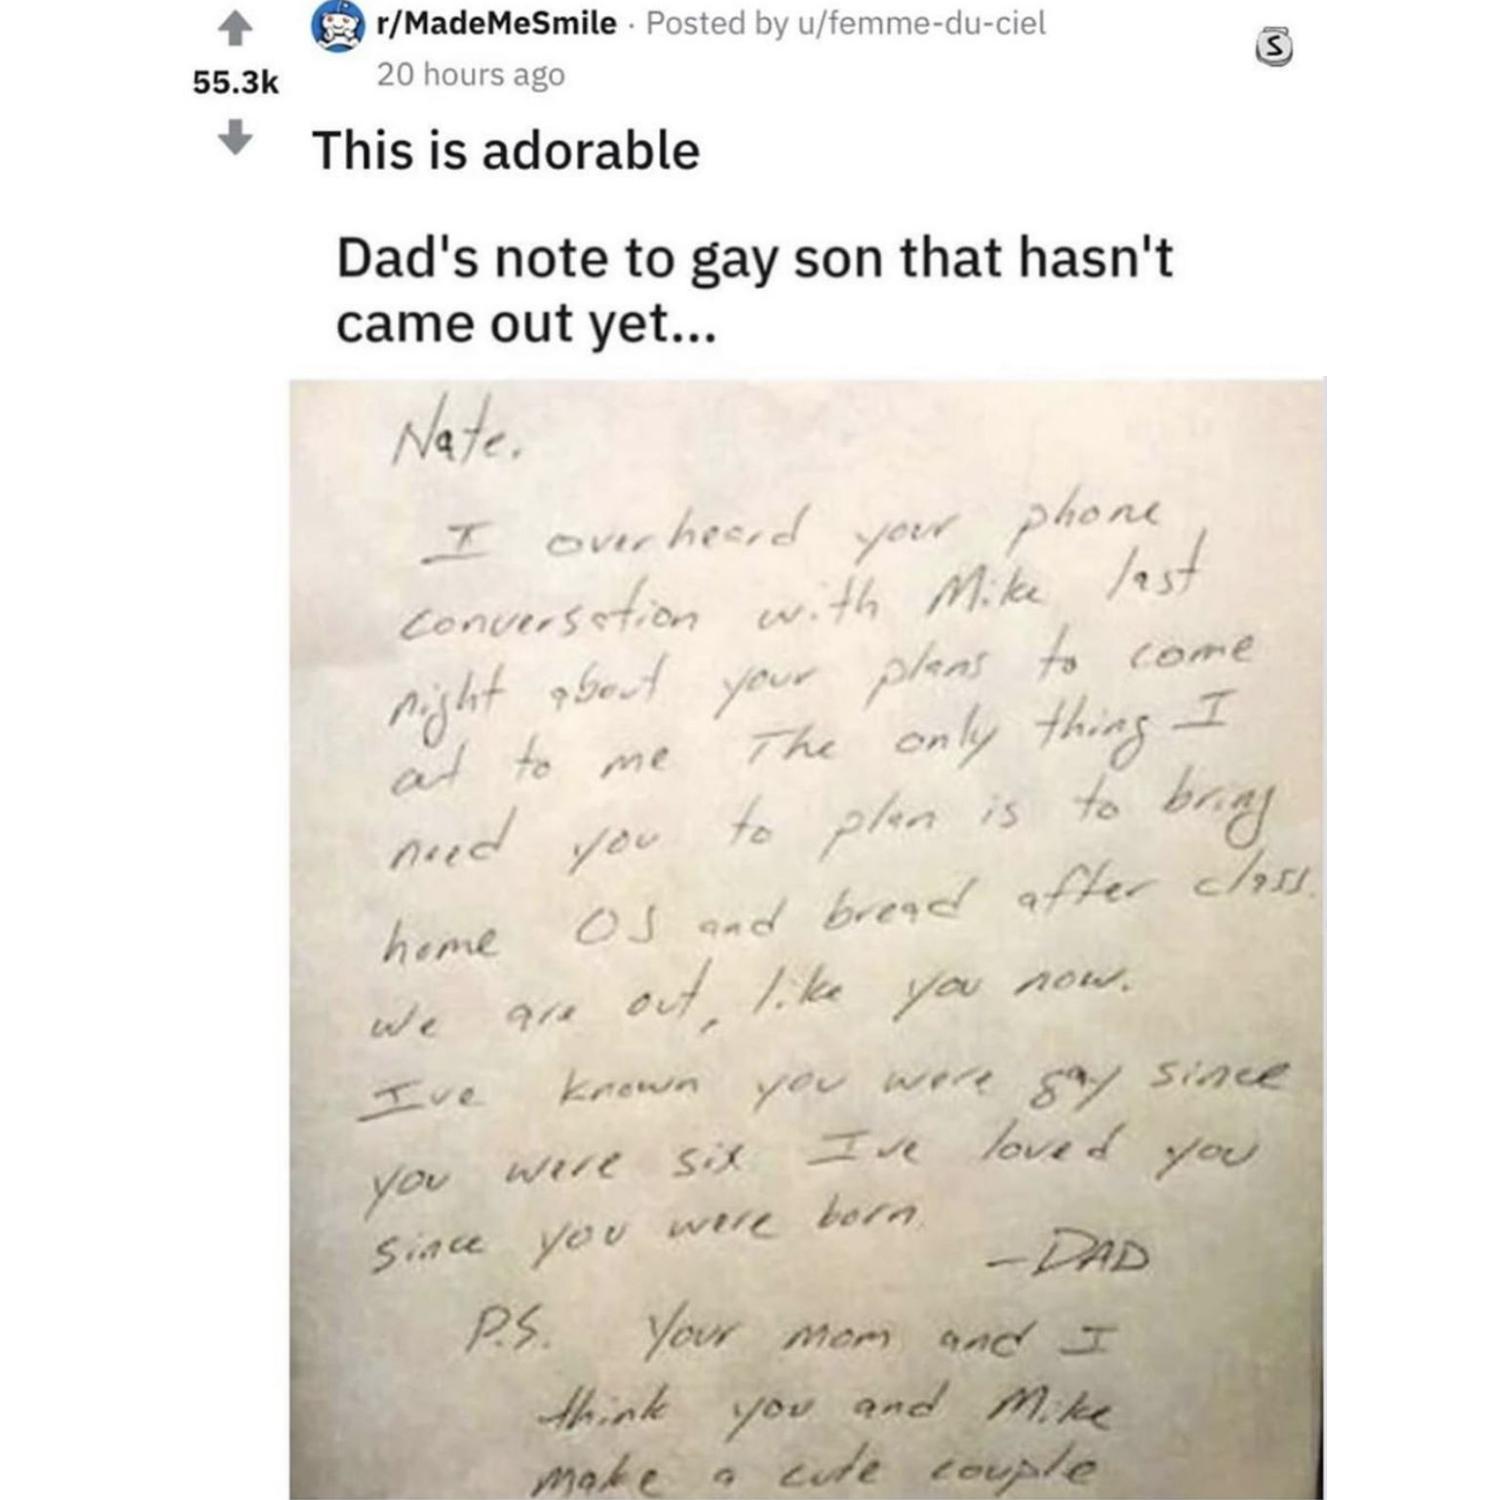 r/MadeMeSmile · Posted by u/femme-du-ciel
20 hours ago
55.3k
S
This is adorable
Dad's note to gay son that hasn't
came out yet...
Nate.
I overheard your phone
conversation with Mike last
night about your plans to come
out to me The only thing I
need you to plan is to bring
home OJ and bread after class.
We are out, like you now.
I've known you were gay since
you were six I've loved you
since you were born.
-DAD
P.S. Your mom and I
think you and Mike
make a cute couple